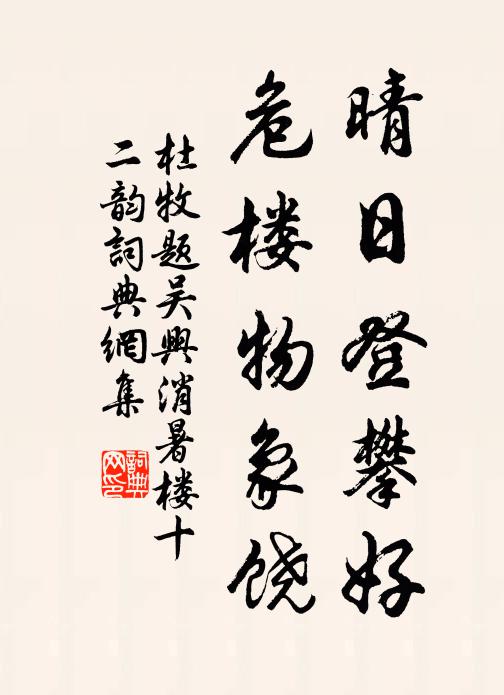 晴日登攀好
危楼物象饶
杜牧题吴興消暑楼十
二韵詞典網集
詞典
网印